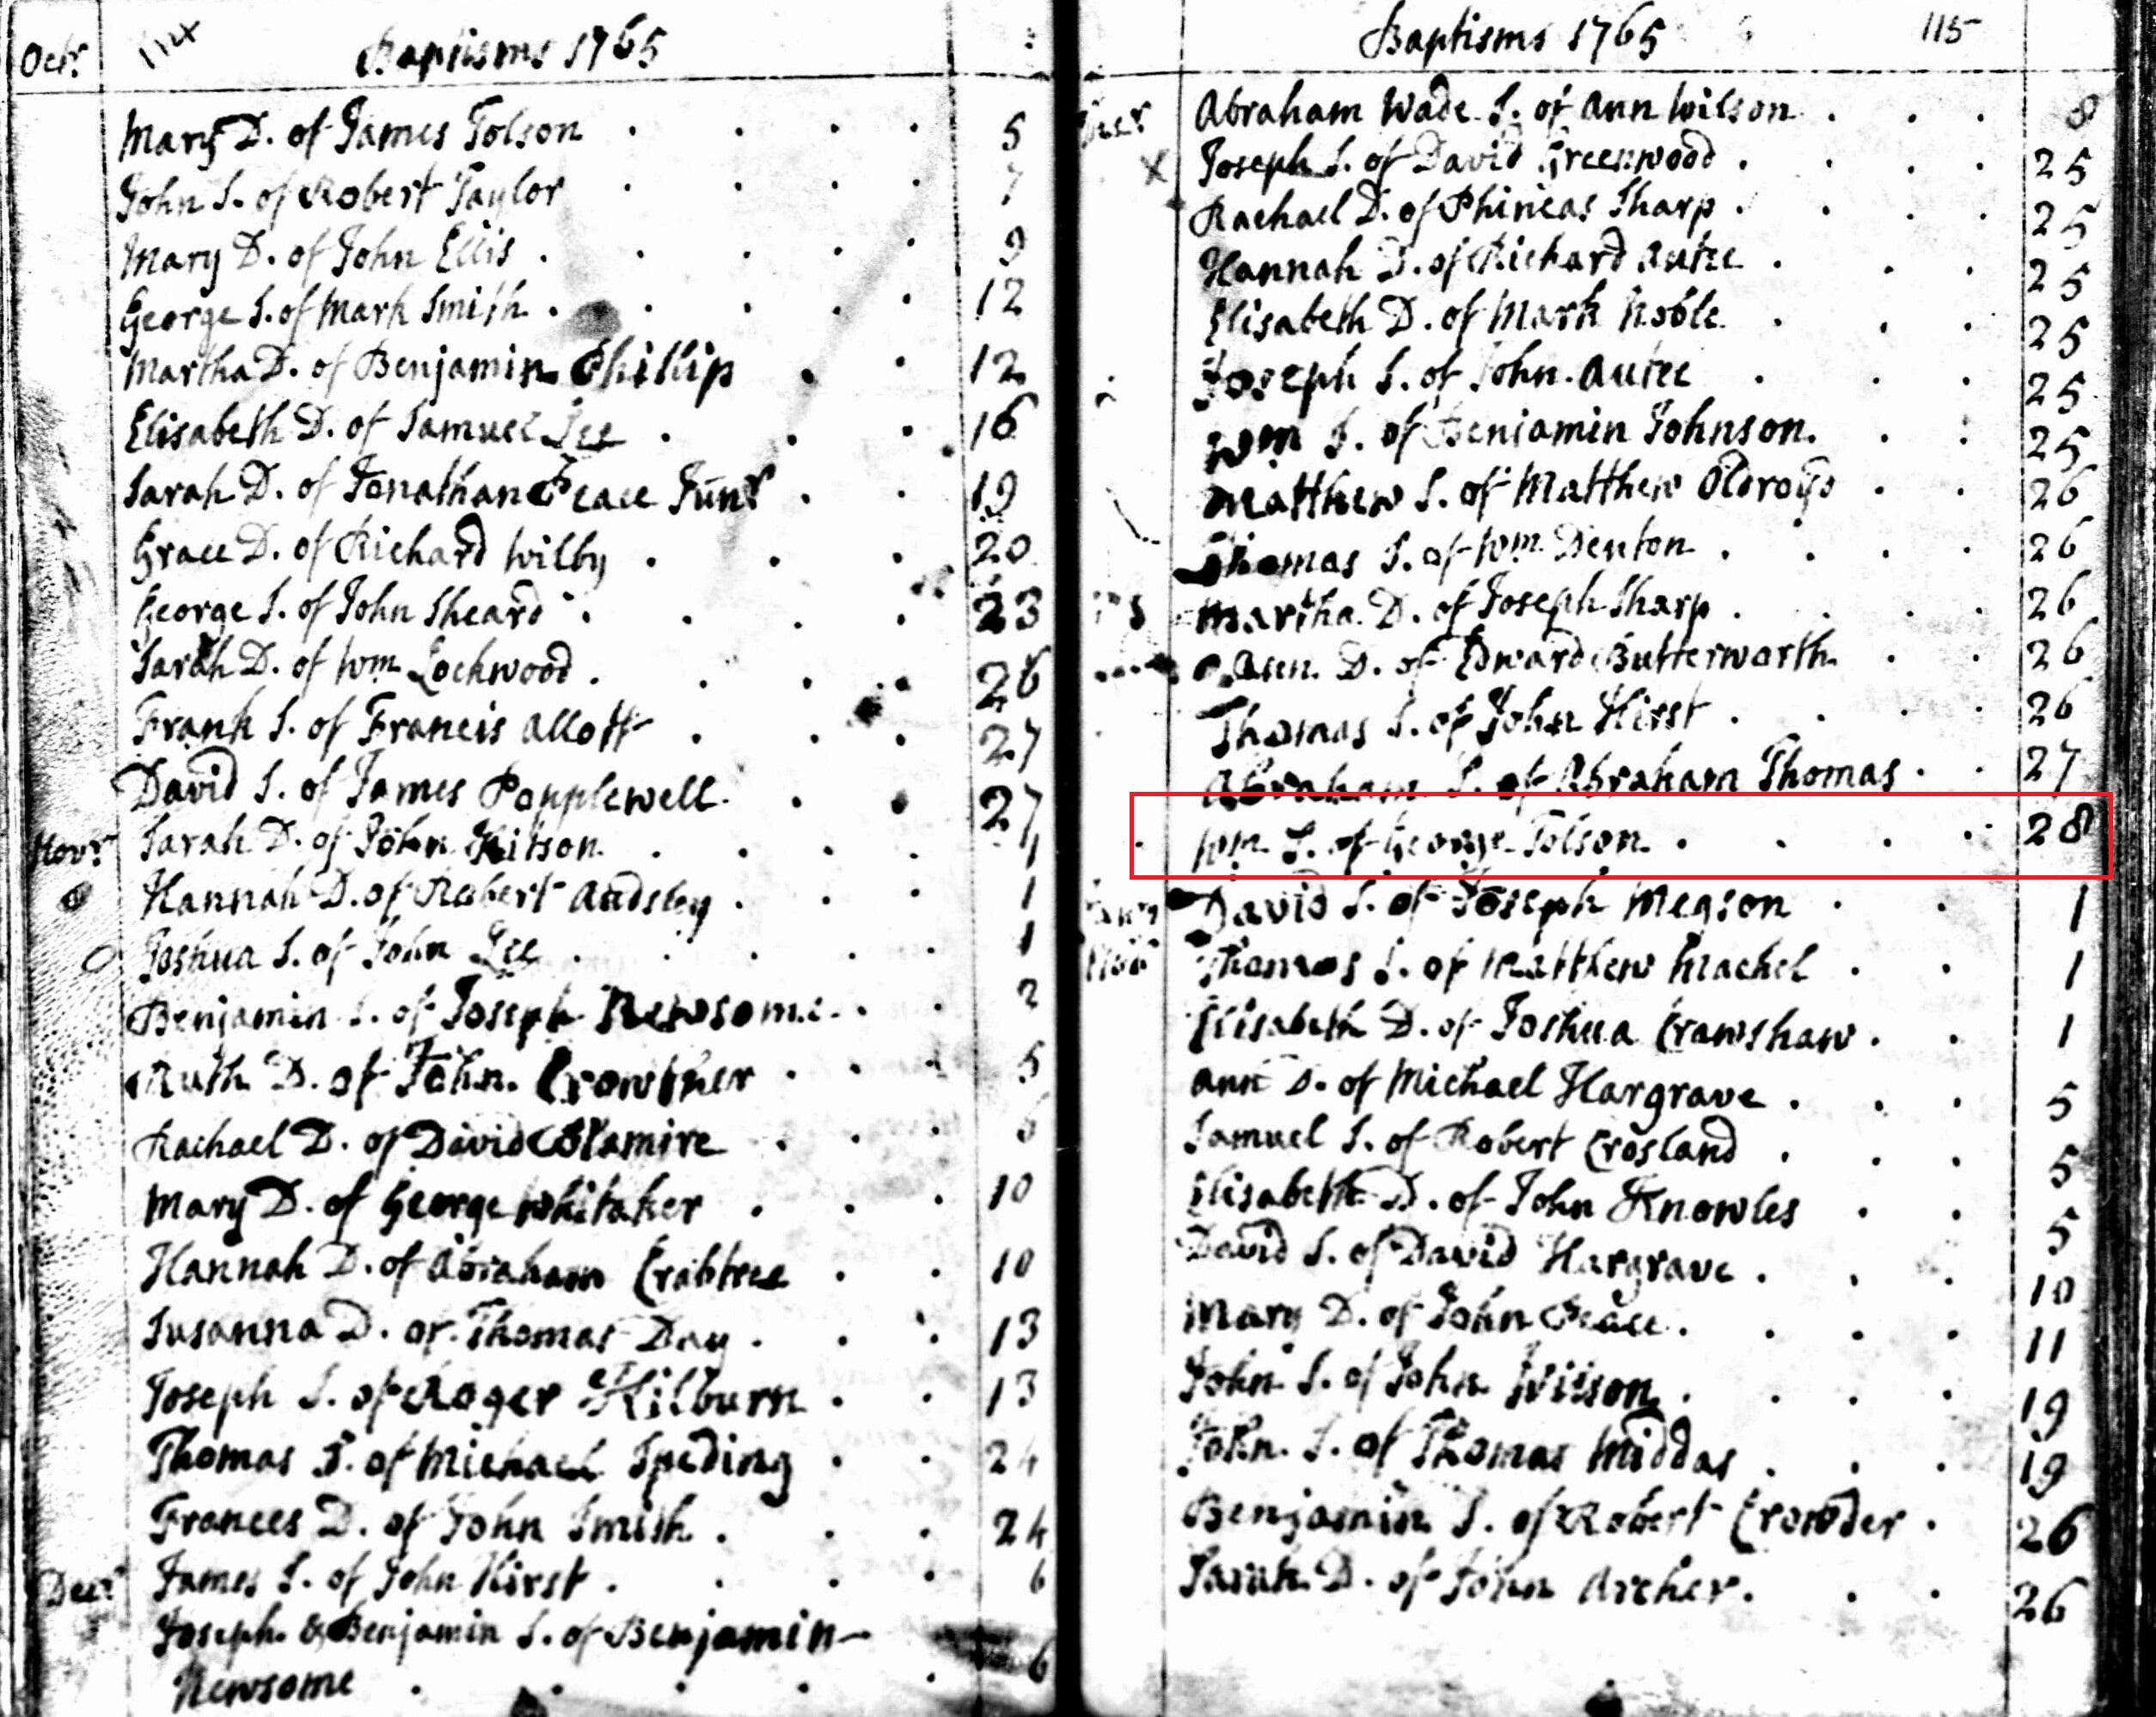 Octr. 114 Baptisms 1765
Mary D. of James Tolson 5
John S. of Robert Taylor 7
Mary D. of John Ellis 9
George S. of Mark Smith 12
Martha D. of Benjamin Phillip 12
Elisabeth D. of Samuel Lee 16
Sarah D. of Jonathan Peace Junr 19
Grace D. of Richard Wilby 20
George S. of John Sheard 23
Sarah D. of Wm Lockwood 26
Frank S. of Francis Allott 27
David S. of James Popplewell 27
Novr Sarah D. of John Kitson 1
Hannah D. of Robert Audsley 1
Joshua S. of John Lee 1
Benjamin S. of Joseph Newsome 2
Ruth D. of John Crowther 5
Rachael D. of David Blamire
Mary D. of George Whitaker 10
Hannah D. of Abraham Crabtree 10
Susanna D. of Thomas Day 13
Joseph S. of Roger Kilburn 13
Thomas S. of Michael Speding 24
Frances D. of John Smith 24
Decr James S. of John Hirst 6
Joseph & Benjamin S. of Benjamin
Newsome 6
Baptisms 1765 115
Decr Abraham Wade S. of Ann Wilson 8
X Joseph S. of David Greenwood 25
Rachael D. of Phineas Sharp 25
Hannah D. of Richard Autee 25
Elisabeth D. of Mark Noble 25
Joseph S. of John Autee 25
Wm S. of Benjamin Johnson 25
Matthew S. of Matthew Oldroyd 26
Thomas S. of Wm Denton 26
Martha D. of Joseph Sharp 26
Ann D. of Edward Butterworth 26
Thomas S. of John Hirst 26
Abraham S. of Abraham Thomas 27
Wm S. of George Tolson 28
David S. of Joseph Megson 1
Thomas S. of Matthew Machel 1
Elisabeth D. of Joshua Crawshaw 1
Ann D. of Michael Hargrave 5
Samuel S. of Robert Crosland 5
Elisabeth D. of John Knowles 5
David S. of David Hargrave 10
Mary D. of John Peace 11
John S. of John Wilson 19
John S. of Thomas Middas 19
Benjamin S. of Robert Crowder 26
Sarah D. of John Archer 26